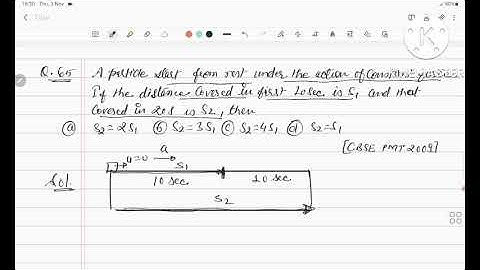 Thu, 3 Nov
Title
Q.65 A particle start from rest under the action of constant force
If the distance covered in first 10sec is S1 and that
covered in 20s is S2, then
(a) S2=2S1 (b) S2=3S1 (c) S2=4S1 (d) S2=S1
[CBSE PMT 2009]
Sol.
u=0 a
S1
10 sec 10 sec
S2